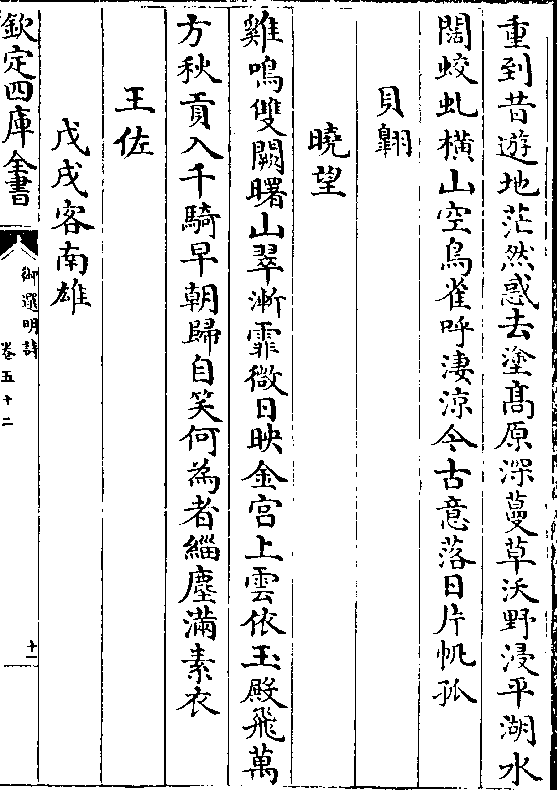 重到昔遊地茫然惑去塗髙原深蔓草沃野浸平湖水
闊蛟虬橫山空鳥雀呼淒涼今古意落日片帆孤
貝翱
曉望
雞鳴雙闕曙山翠漸霏微日映金宫上雲依玉殿飛萬
方秋貢入千騎早朝歸自笑何為者緇塵滿素衣
王佐
戊戌客南雄
欽定四庫全書
御選明詩
卷五十二
十一